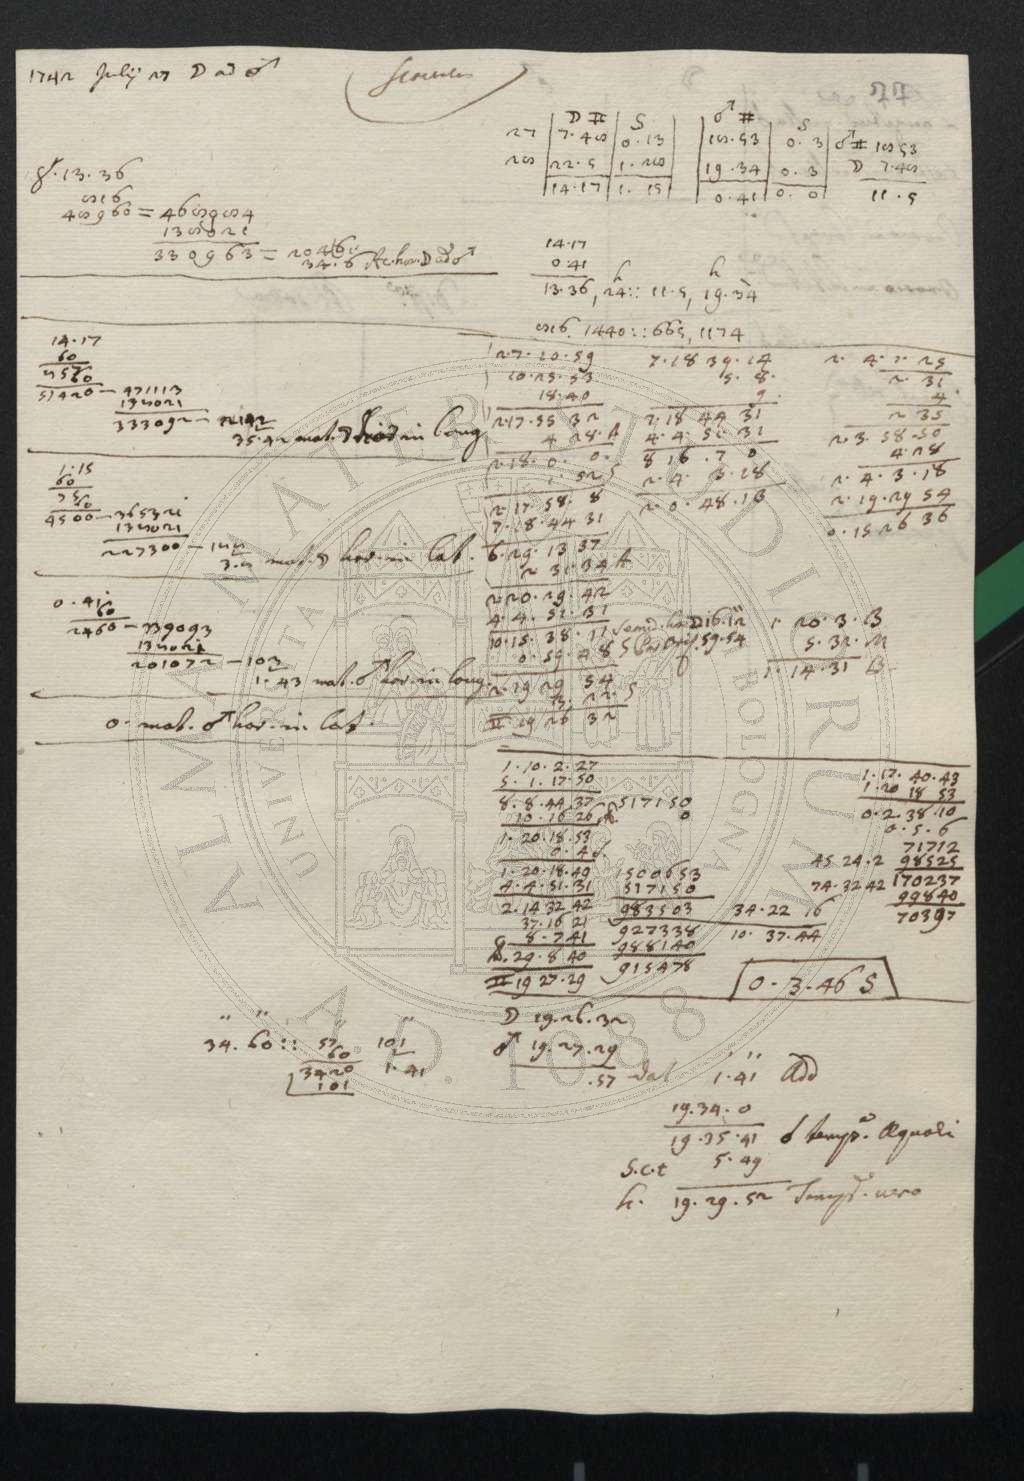 1742 Julij 27 ☽ ad ♂
77
☽ ♊ S ♂ ♊ S
27 7.48 0.13 18.53 0.3 ♂ ♊ 18 53
28 22.5 1.28 19.34 0.3 ☽ 7.48
14.17 1.15 0.41 0.0 11.5
13.36
816
48960 = 468984
135021
330963 = 20461
34.6
14.17
0.41
13.36, 24 :: 11.5, 19.34
816. 1440 :: 665, 1174
14.17
60
857
60
51420 — 471113
135021
333092 — 2142
35.42 mot. ☽ hor. in long
1.15
60
75
60
4500 — 365321
135021
227300 — 188
3.8 mot. ☽ hor. in lat.
0.41
60
2460 — 339093
135021
201072 — 103
1.43 mot. ♂ hor. in long.
0. mot. ♂ hor. in lat.
2.7.10.59 7.18 39.14 2.4.2.25
10.25.53 5.8. 2 31
18.40 9. 4
2.17.55 32 7.18 44 31 2 35
4 28. A 4.4.51.31 2.3.58.50
2.18.0.0. 8 16.7 0 4.28
1.52 S 2.4.3.18 2.4.3.18
2.17 58.8 2.0.48.13 2.19.29 54
7.18.44 31 0.15 26 36
6.29.13 37
2 31.34 A
2 20.29.42
4.4.51.31 1 20.3.B
10.15.38.11 5.32.M
0.59.48 1.14.31 B
2.19 29 54
3.22.S
♊ 19 26 32
1.10.2.27 1.17.40.43
5.1.17.50 1.20 18 53
8.8.44 37 517150 0.2.38.10
10.16 26 0 0.5.6
1.20.18.53 71712
0.4 S. 45 24.2 98525
1.20.18.49 1500653 74.32 42 170237
4.4.51.31 517150 99840
2.14 32 42 983503 34.22 16 70397
37.16 21 927338 10.37.44
8.7 41 988140
29.8 40 915478 0.3.46 S
♊ 19 27.29
34. 60 :: 57 101
60 1.41
3420
101
☽ 19.26.32
♂ 19.27.29
.57 dat 1.41 Add
19.34.0
19.35.41 ☌ temp.e æquali
S.c.t 5.49
h. 19.29.52 Temp.e vero